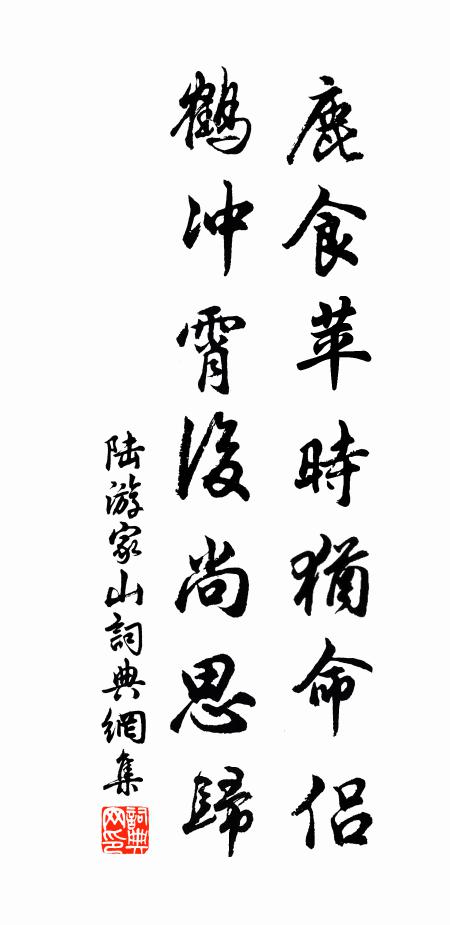 鹿食苹時猶命侣
鶴冲霄後尚思歸
陸游家山詞典網集
詞典网印